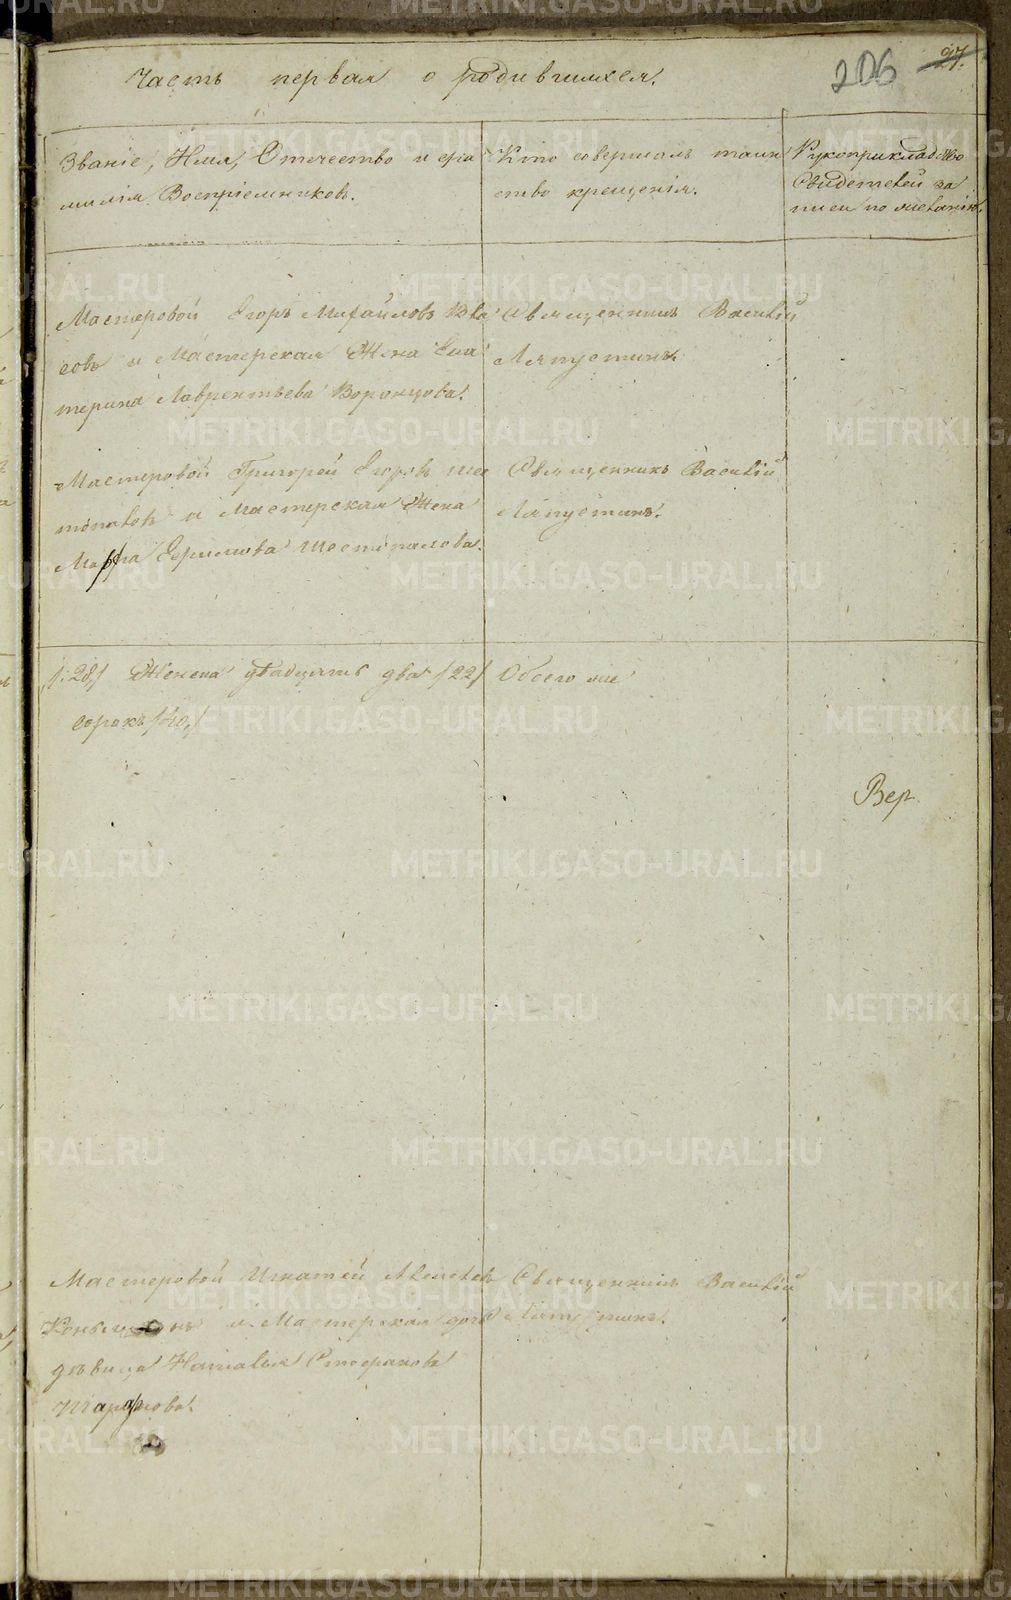 206
27.
Часть первая о родившихся.
Званіе, Имя, Отечество и фа
милія Воспріемниковъ.
Кто совершалъ таин
ство крещенія.
Рукоприкладство
Свидетелей за
писи по желанію.
Мастеровой Егоръ Михайловъ Вла
совъ и Мастерская Жена Ека
терина Лаврентьева Воронцова.
Священникъ Василій
Ляпустинъ.
Мастеровой Григорей Егоровъ Ше
и Мастерская Жена
Марфа Шестопалова.
Священникъ Василій
Ляпустинъ.
/:28/ Женска двадцать два /22/ Обоего
сорокъ
Вер
Мастеровой Игнатей
и Мастерская дочь
дѣвица Наталья
Священникъ Василій
Ляпустинъ.
METRIKI.GASO-URAL.RU